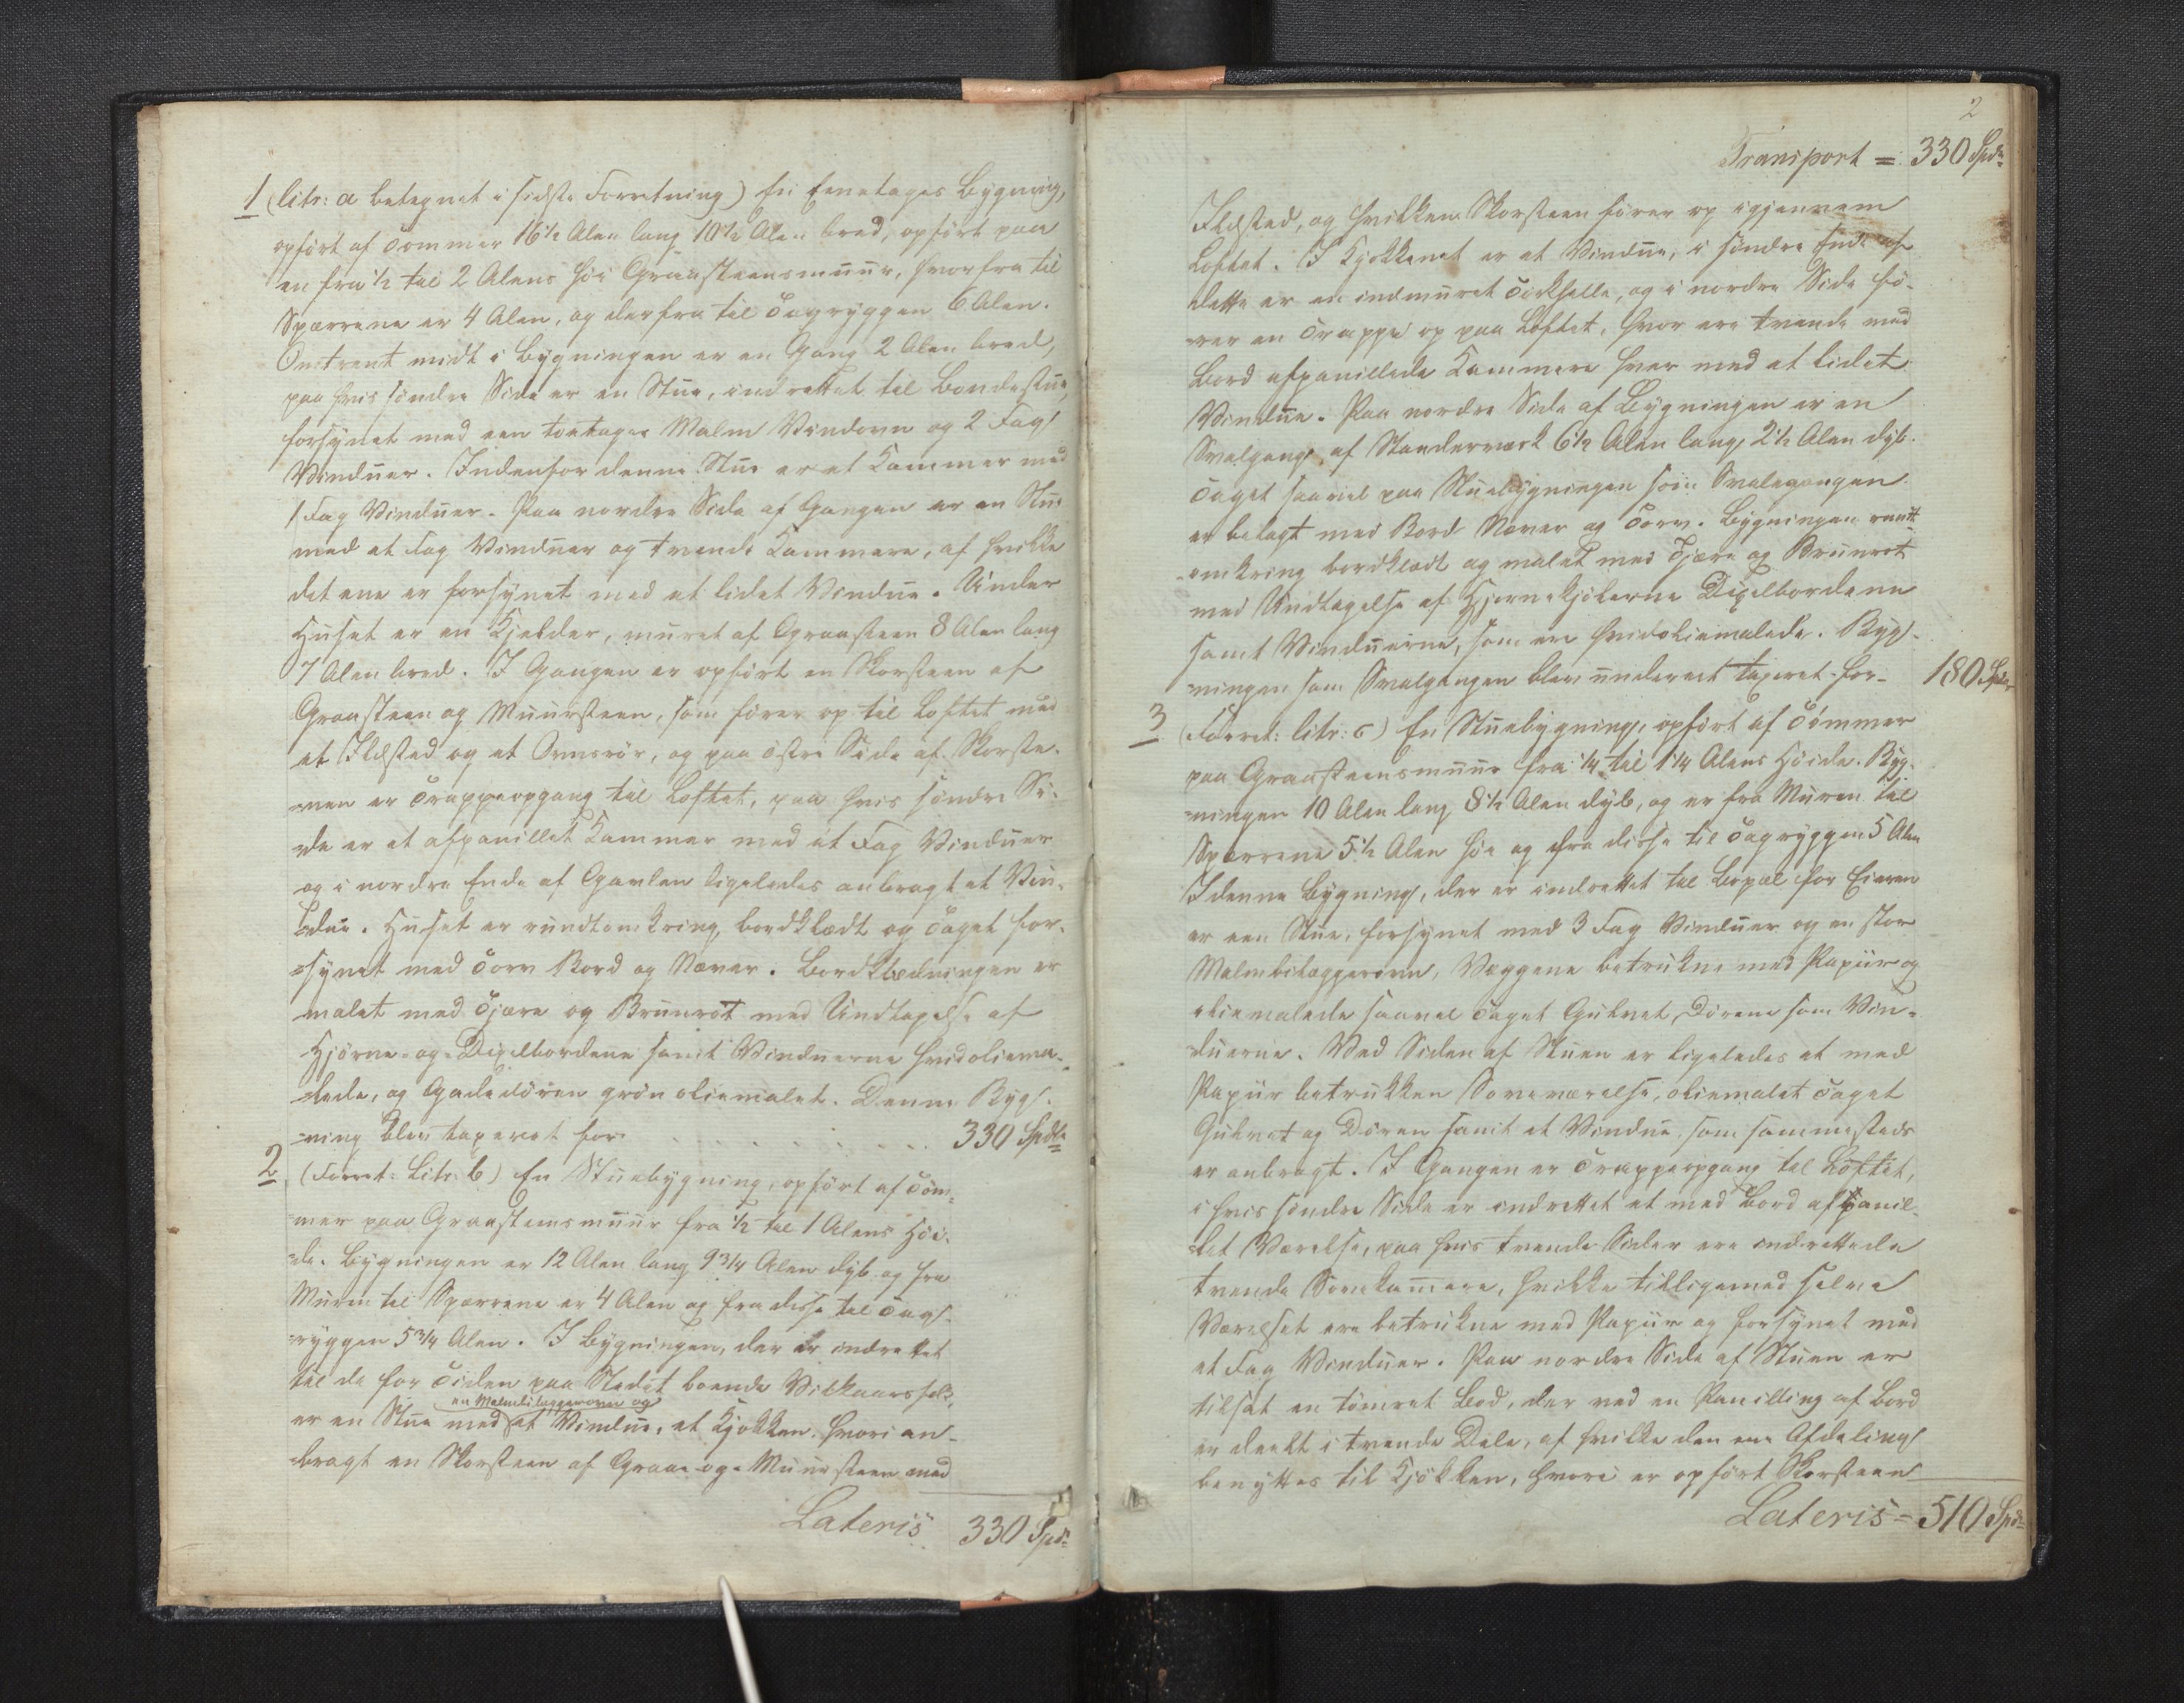 1 (litr: a betegnet i sidste Forretning) En Eenetages Bygning,
opført af Tømmer 16½ Alen lang 10½ Alen bred, opført paa
en fra ½ til 2 Alens høi Graasteensmuur, hvorfra til
Spærrene er 4 Alen, og derfra til Tagryggen 6 Alen.
Omtrent midt i Bygningen er en Gang 2 Alen bred,
paa hvis søndre Side er en Stue, indrettet til Bondestue,
forsynet med een toetages Malm Vindovn og 2 Fag
Vinduer. Indenfor denne Stue er et Kammer med
1 Fag Vinduer. Paa nordre Side af Gangen er en Stue
med et Fag Vinduer og tvende Kammere, af hvilke
det ene er forsynet med et lidet Vindue. Under
Huset er en Kjelder, muret af Graasteen 8 Alen lang
7 Alen bred. I Gangen er opført en Skorsteen af
Graasteen og Muursteen, som fører op til Loftet med
et Ildsted og et Ovnsrør, og paa østre Side af Skorste-
=nen er Trappeopgang til Loftet, paa hvis søndre Si-
=de er et afpanillet Kammer med et Fag Vinduer
og i nordre Ende af Gavlen ligeledes anbragt et Vin-
=due. Huset er rundtomkring bordklædt og Taget for-
=synet med Torv Bord og Næver. Bordklædningen er
malet med Tjære og Brunrøt med Undtagelse af
Hjørne- og Degelbordene samt Vinduerne hvidoliema-
=lede, og Gadedøren grøn oliemalet. Denne Byg-
=ning blev taxeret for . . . . . . . . 330 Spdlr
2 (Forret: Litr: b) En Stuebygning, opført af Tøm-
=mer paa Graasteensmuur fra ½ til 1 Alens Høi-
=de. Bygningen er 12 Alen lang 9¾ Alen dyb og fra
Muren til Spærrene er 4 Alen og fra disse til Tag-
=ryggen 5¾ Alen. I Bygningen, der er indrettet
til de for Tiden paa Stedet boende Vilkaarsfolk,
en Malmbilæggerovn og
er en Stue med et Vindue, et Kjøkken, hvori an-
=bragt en Skorsteen af Graae- og Muursteen med
Lateris 330 Spd=
2
Transport = 330 Spd=
Ildsted, og hvilken Skorsteen fører op igjennem
Loftet. I Kjøkkenet er et Vindue, i søndre Ende af
dette er en indmuret Tørkhelle, og i nordre Side fø-
=rer en Trappe op paa Loftet, hvor ere tvende med
Bord afpanillede Kammere hver med et lidet
Vindue. Paa nordre Side af Bygningen er en
Svalgang af Standerværk 6½ Alen lang, 2½ Alen dyb.
Taget saavel paa Stuebygningen som Svalegangen
er belagt med Bord Næver og Torv. Bygningen rundt
=omkring bordklædt og malet med Tjære og Brunrøt
med Undtagelse af Hjørnekjølerne Degelbordene
samt Vinduerne, som ere hvidoliemalede. Byg-
=ningen som Svalgangen blev undereet taxeret for- 180 Spdlr
3 (Forret: litr: c) En Stuebygning, opført af Tømmer
paa Graasteensmuur fra ¼ til 1¼ Alens Høide. Byg-
=ningen 10 Alen lang 8½ Alen dyb, og er fra Muren til
Spærrene 5½ Alen høi og fra disse til Tagryggen 5 Alen
I denne Bygning, der er indrettet til Bopæl for Eieren
er een Stue, forsynet med 3 Fag Vinduer og en stor
Malmbilæggerovn, Væggene betrukne med Papiir og
oliemalede saavel Taget Gulvet, Dørene som Vin-
=duerne. Ved Siden af Stuen er ligeledes et med
Papiir betrukken Soveværelse, oliemalet Taget
Gulvet og Døren samt et Vindue som sammesteds
er anbragt. I Gangen er Trappeopgang til Loftet,
i hvis søndre Side er indrettet et med Bord afpanil-
=let Værelse, paa hvis tvende Sider ere indrettede
tvende Sovekamere, hvilke tilligemed selve
Værelset ere betrukne med Papiir og forsynet med
et Fag Vinduer. Paa nordre Side af Stuen er
tilsat en tømret Bod, der ved en Panilling af Bord
er deelt i tvende Dele, af hvilke den ene Afdeling
benyttes til Kjøkken, hvori er opført Skorsteen
Lateris = 510 Spd=